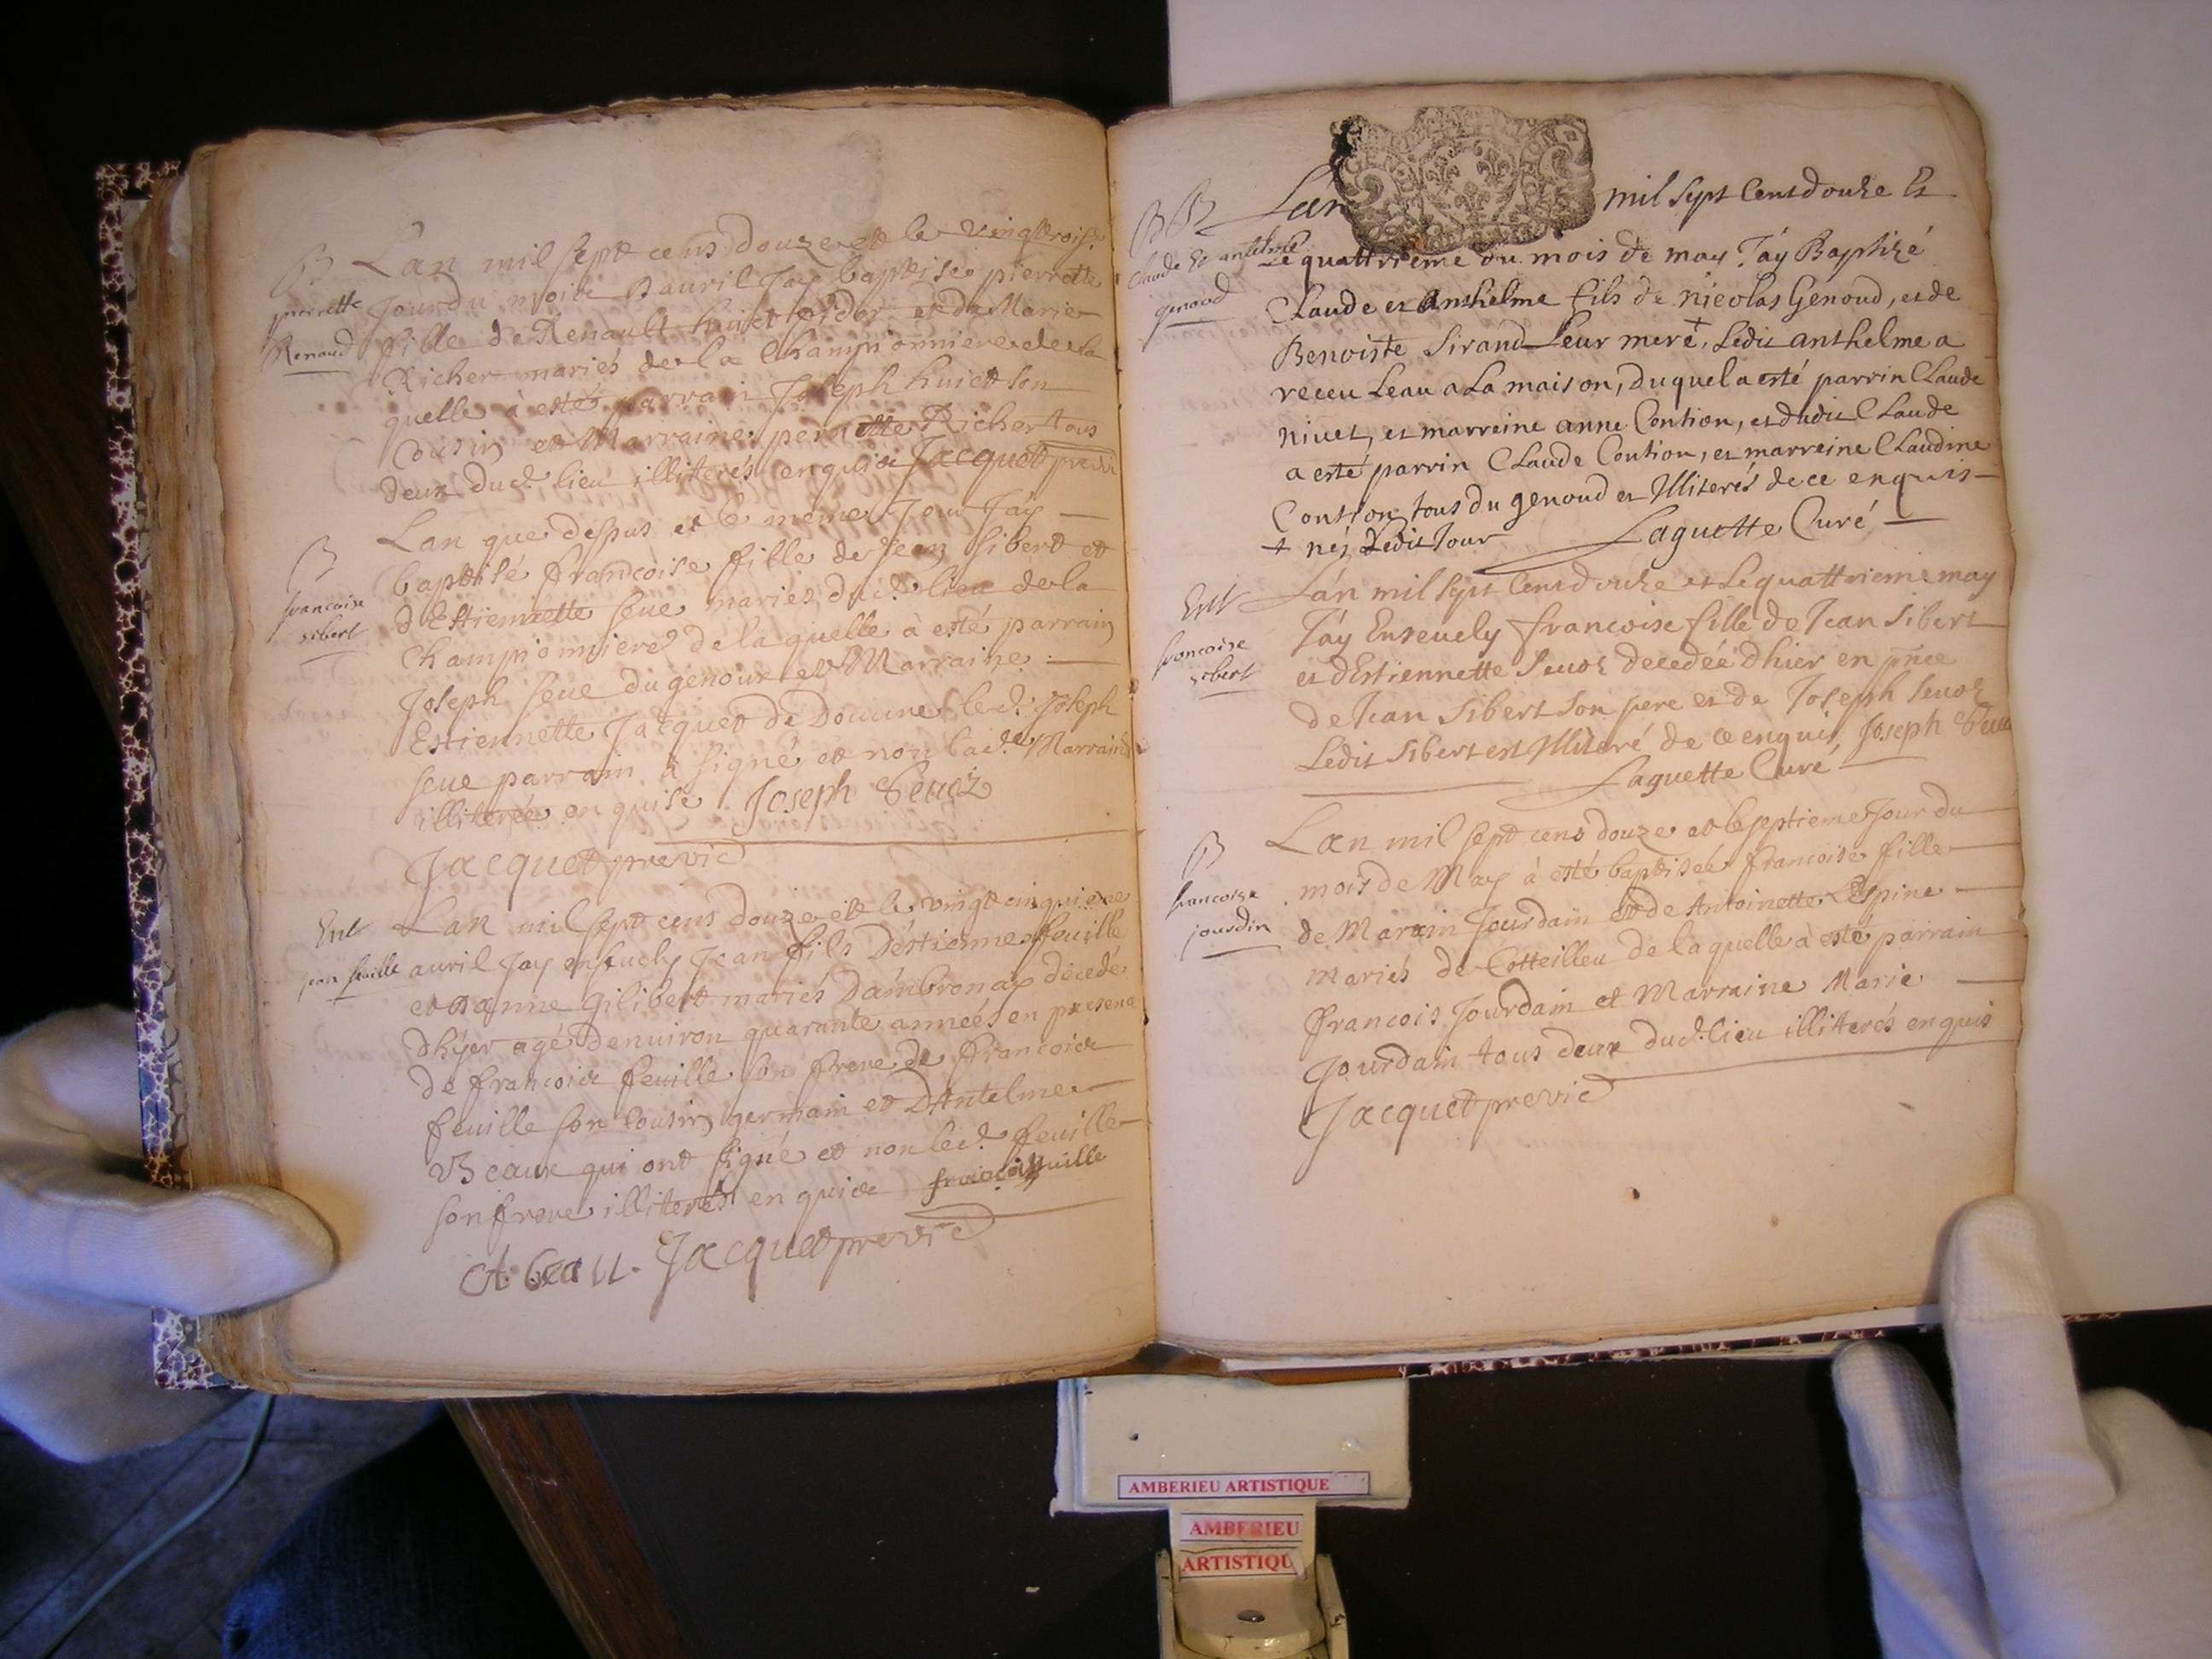 B
pierrette
Renaud
Lan mil sept cens douze et le vingtrois.e
Jour du mois d'auril Jay baptisée pierrette
fille de Renault huict et de Marie
Richer mariés de la Championniere de la
quelle à esté parrain Joseph huict son
Cousin et Marraine pernette Richer tous
deux dud. lieu illiterés enquis Jacquet previc
B
francoise
sibert
Lan que dessus et le meme Jour Jay
baptisé francoise fille de Jean Sibert et
d'Estiennette Seue mariés dud. lieu de la
Championniere de la quelle à esté parrain
Joseph Seue du genoux et Marraine
Estiennette Jacquet de Douure led. Joseph
Seue parrain à signé et non lad.e Marraine
illiterée enquise Joseph Seuoz
Jacquet previc
Ent
jean feuille
Lan mil sept cens douze et le vingt cinquieme
auril Jay enseuely Jean fils Déstienne feuille
et danne gilibert mariés Dámbronay décedé
dhyer agé denuiron quarante années en presence
de francois feuille son frere de francois
feuille son Cousin germain et DAntelme
Beaux qui ont signé et non led. feuille
son frere illiteres enquis francois feuille
A. beau. Jacquet previc
BB
Claude et antelme
genoud
GEN
Lán mil sept Cent douze Et
Le quattrieme du mois de may Jáy Baptizé
Claude et Anthelme fils de nicolas Génoud, et de
Benoiste Sirand Leur mere +, Ledit anthelme a
receu Leau a La maison, duquel a esté parrin Claude
niuet, et marreine anne Contion, et dudit Claude
a esté parrin Claude Contion, et marreine Claudine
Contion tous du genoud et Illiterés de ce enquis
+ nés Ledit Jour Laguette Curé
Ent
francoise
sibert
Lán mil sept Cent douze et Le quattrieme may
Jáy Enseuely francoise fille de Jean Sibert
et dEstiennette Seuoz decedée dhier en pnce
de Jean Sibert Son pere et de Joseph Seuoz
Ledit Sibert est Illiteré de ce enquis, Joseph Seuoz
Laguette Curé
B
francoise
jourdin
Lan mil sept cens douze et le septieme Jour du
mois de May à esté baptisée francoise fille
de Marin Jourdain et de Antoinette Lespine
mariés de Cotteilleu de laquelle à esté parrain
francois Jourdain et Marraine Marie
Jourdain tous deux dud. lieu illiterés enquis
Jacquet previc
AMBERIEU ARTISTIQUE
AMBERIEU
ARTISTIQU